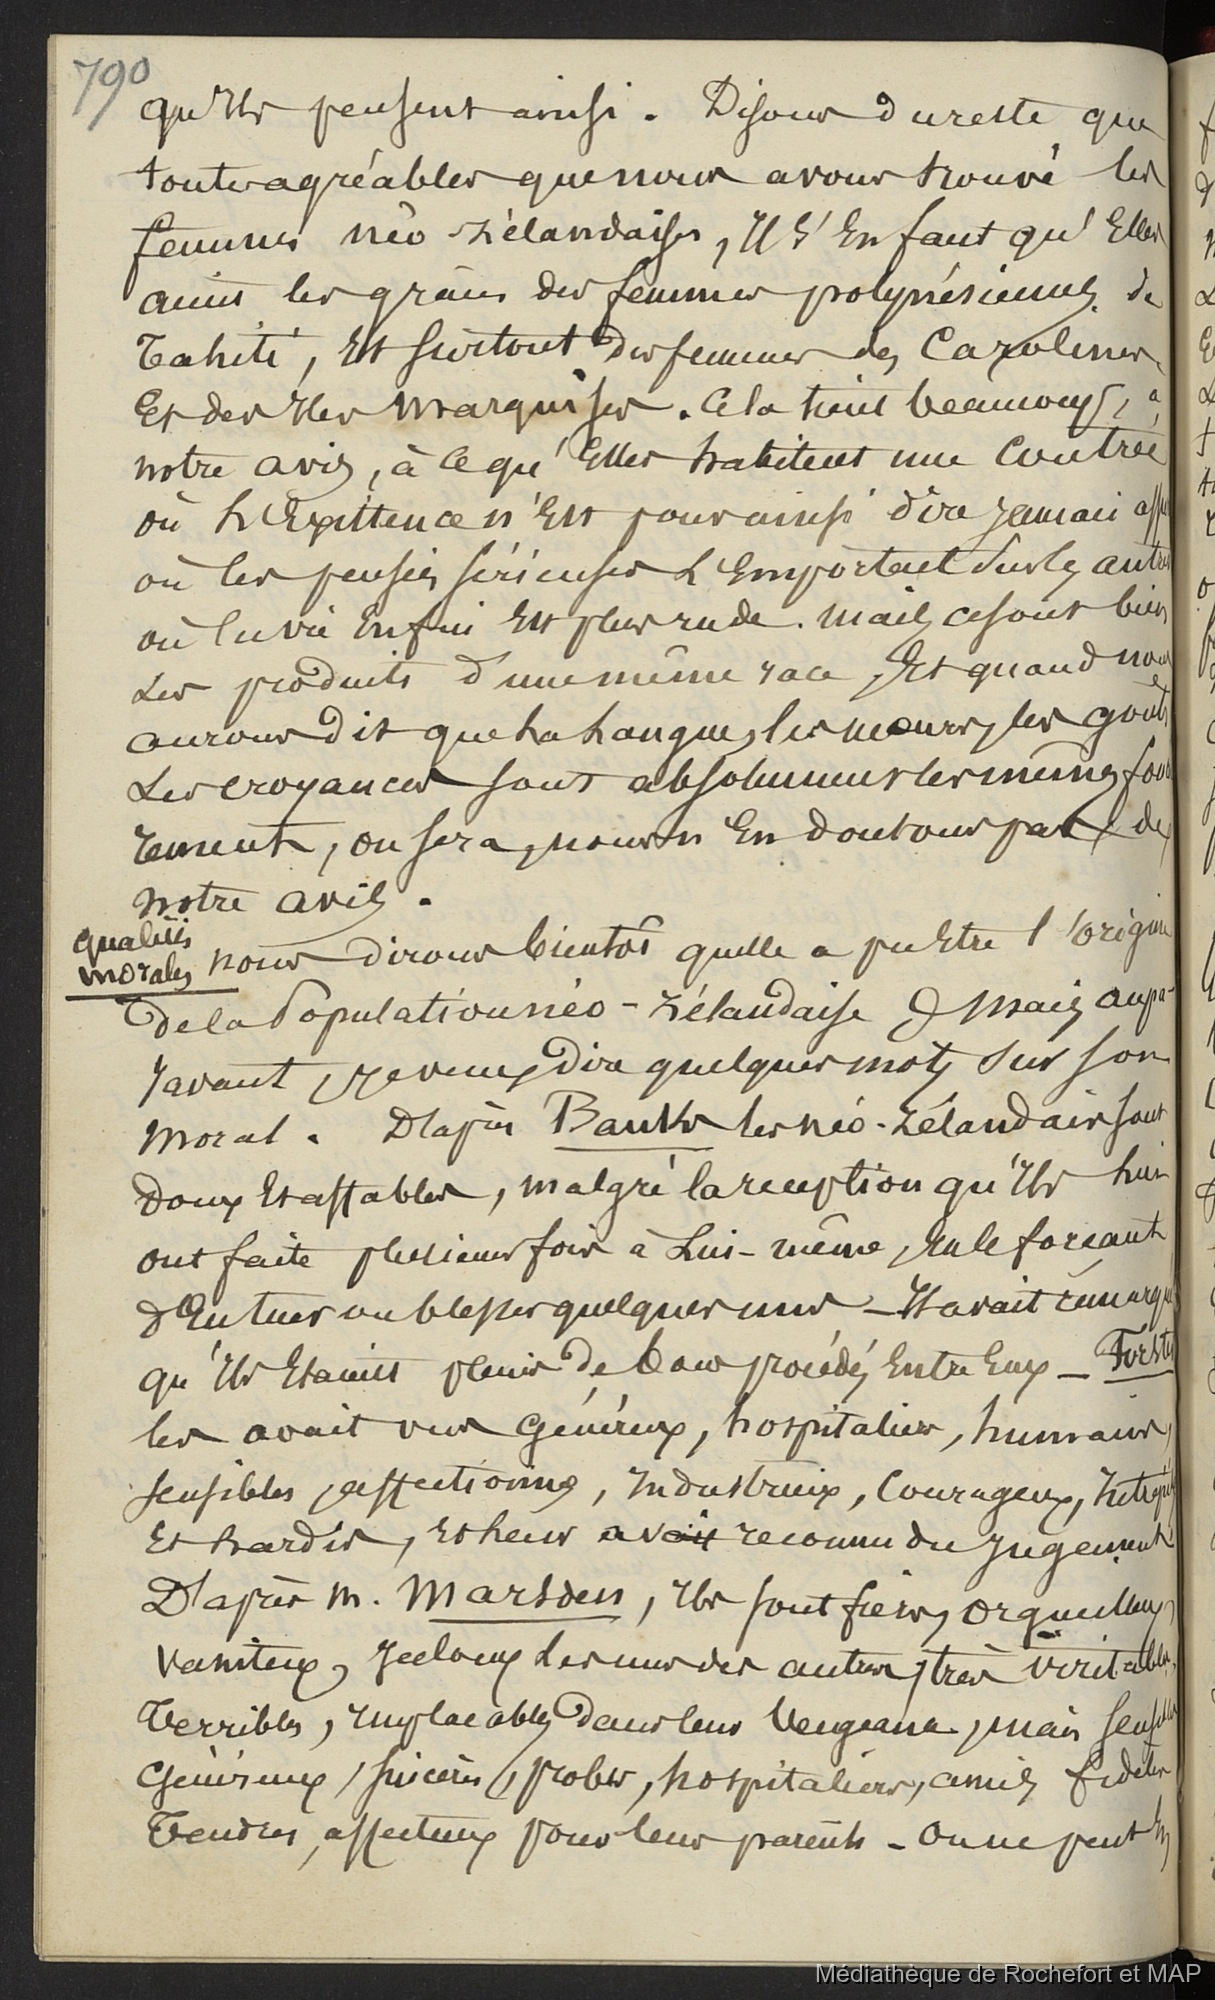 790
qu'Ils pensent ainsi. Disons du reste que
toutes agréables que nous avons trouvé les
femmes néo-Zélandaises, Il s'En faut qu'Elles
aient les grâces des femmes polynésiennes de
Tahiti, Et surtout des femmes des Carolines
Et des Iles Marquises. Cela tient beaucoup, à
notre avis, à ce qu'Elles habitent une Contrée
où L'Existence n'Est pour ainsi dire Jamais
où les pensées sérieuses L'Emportent sur les autres
où la vie Enfin Est plus rude. Mais ce sont bien
Les produits d'une même race, Et quand nous
aurons dit que La Langue, les mœurs, les goûts
Les croyances sont absolument les mêmes
on sera, nous n'En doutons pas, de
notre avis.
qualités
morales
nous dirons bientôt quelle a pu Etre l'origine
De la Population néo-Zélandaise & Mais aupa-
ravant, Je veux dire quelques mots sur son
Moral. D'après Banks les néo-Zélandais sont
Doux Et affables, malgré la reception qu'Ils lui
ont faite plusieurs fois à Lui-même, En le forcant
d'En tuer ou blesser quelques uns - Il avait remarqué
qu'Ils Etaient pleins de bons procédés Entre Eux - Forster
les avait vus Généreux, hospitaliers, humains,
sensibles, affectionnés, Industrieux, Courageux, Intrépides
Et hardis, Et leur avait reconnu du Jugement
D'après M. Marsden, Ils sont fiers, orgueilleux,
vaniteux, Jaloux Les uns des autres, très
Terribles, Implacables dans leur Vengeance, mais sensibles
Généreux, sincères, probes, hospitaliers, amis fidèles
Tendres, affectueux pour leurs parents - On ne peut En
Médiathèque de Rochefort et MAP